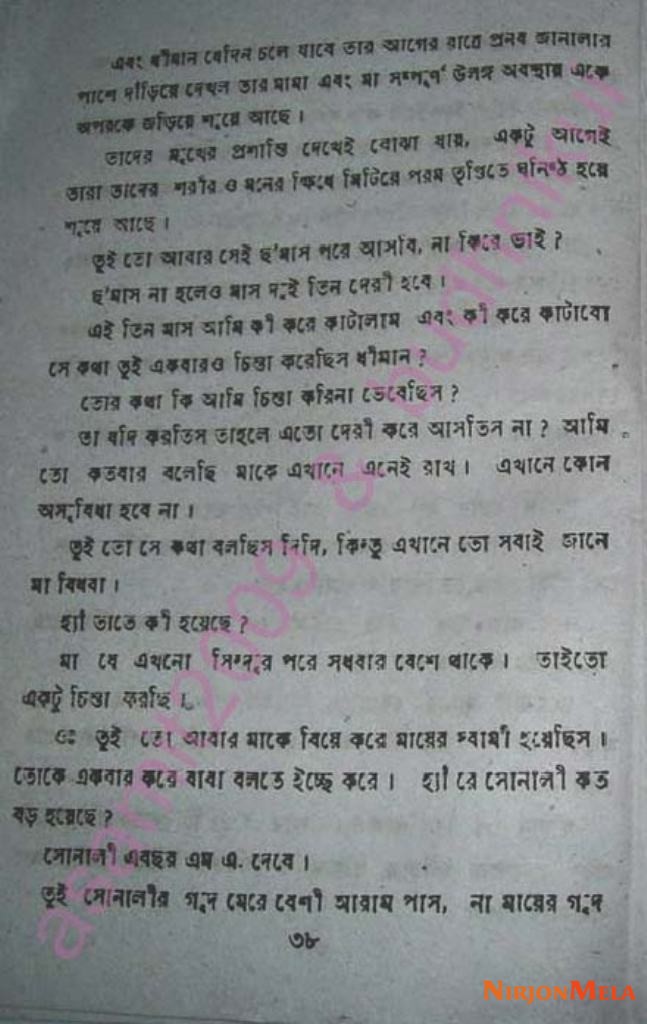 এবং ধীমান যেদিন চলে যাবে তার আগের রাতে প্রনব জানালার
পাশে দাঁড়িয়ে দেখল তার মামা এবং মা সম্পূর্ণ উলঙ্গ অবস্থায় একে
অপরকে জড়িয়ে শুয়ে আছে।
তাদের মুখের প্রশান্তি দেখেই বোঝা যায়, একটু আগেই
তারা তাদের শরীর ও মনের ক্ষিধে মিটিয়ে পরম তৃপ্তিতে ঘনিষ্ঠ হয়ে
শুয়ে আছে।
তুই তো আবার সেই ছ'মাস পরে আসবি, না কিরে ভাই?
ছ'মাস না হলেও মাস দুই তিন দেরী হবে।
এই তিন মাস আমি কী করে কাটালাম এবং কী করে কাটাবো
সে কথা তুই একবারও চিন্তা করেছিস ধীমান?
তোর কথা কি আমি চিন্তা করিনা ভেবেছিস?
তা যদি করতিস তাহলে এতো দেরী করে আসতিস না? আমি
তো কতবার বলেছি মাকে এখানে এনেই রাখ। এখানে কোন
অসুবিধা হবে না।
তুই তো সে কথা বলছিস দিদি, কিন্তু এখানে তো সবাই জানে
মা বিধবা।
হ্যাঁ তাতে কী হয়েছে?
মা যে এখনো সিন্দুর পরে সধবার বেশে থাকে। তাইতো
একটু চিন্তা করছি।
ওঃ তুই তো আবার মাকে বিয়ে করে মায়ের স্বামী হয়েছিস।
তোকে একবার করে বাবা বলতে ইচ্ছে করে। হ্যাঁ রে সোনালী কত
বড় হয়েছে?
সোনালী এবছর এম এ. দেবে।
তুই সোনালীর গুদ মেরে বেশী আরাম পাস, না মায়ের গুদ
৩৮
asamit2009 &
NIRJONMELA